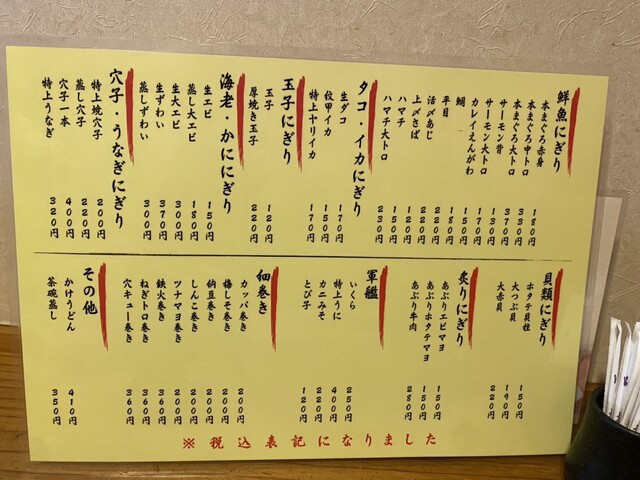 鮮魚にぎり
本まぐろ赤身 180円
本まぐろ中トロ 330円
本まぐろ大トロ 370円
サーモン背 130円
サーモン大トロ 170円
カレイえんがわ 150円
鯛 180円
平目 220円
活〆あじ 220円
上〆さば 120円
ハマチ 150円
ハマチ大トロ 230円
タコ・イカにぎり
生ダコ 170円
紋甲イカ 150円
特上ヤリイカ 170円
玉子にぎり
玉子 120円
厚焼き玉子 220円
海老・かににぎり
生エビ 150円
蒸し大エビ 180円
生大エビ 300円
生ずわい 370円
蒸しずわい 300円
穴子・うなぎにぎり
特上焼穴子 200円
蒸し穴子 220円
穴子一本 400円
特上うなぎ 320円
貝類にぎり
ホタテ貝柱 150円
大つぶ貝 190円
大赤貝 220円
炙りにぎり
あぶりエビマヨ 150円
あぶりホタテマヨ 150円
あぶり牛肉 280円
軍艦
いくら 250円
特上うに 400円
カニみそ 220円
とび子 120円
細巻き
カッパ巻き 200円
梅しそ巻き 200円
納豆巻き 200円
しんこ巻き 200円
ツナマヨ巻き 200円
鉄火巻き 360円
ねぎトロ巻き 360円
穴キュー巻き 360円
その他
かけうどん 410円
茶碗蒸し 350円
※税込表記になりました